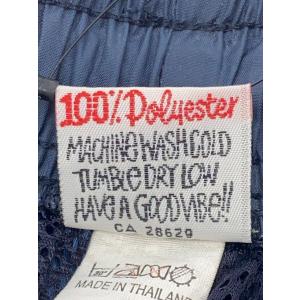 100% Polyester
MACHINE WASH COLD
TUMBLE DRY LOW
HAVE A GOOD VIBE!!
CA 28629
MADE IN THAILAND